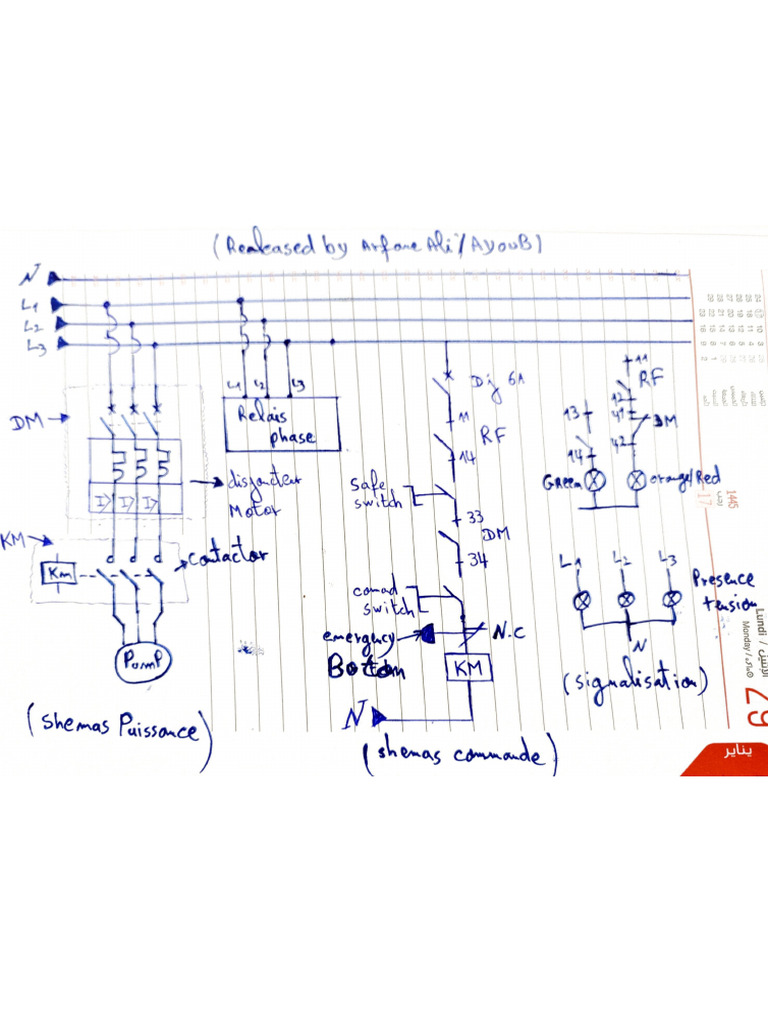 (Realeased by Arfane Ali / AYouB)
N
L1
L2
L3
L1 L2 L3
Relais
phase
DM
disjoncteur
Motor
KM
Km
contactor
PumP
(Shemas Puissance)
Dj 6A
11
RF
14
Safe
switch
33
DM
34
comad
switch
emergency
Boton
N.C
KM
N
(shemas commande)
11
RF
12
13
41
DM
14
42
GReen
orange/Red
L1 L2 L3
Presence
tension
N
(signalisation)
1445
رجب
17
Lundi / الإثنين
Monday /
29
يناير